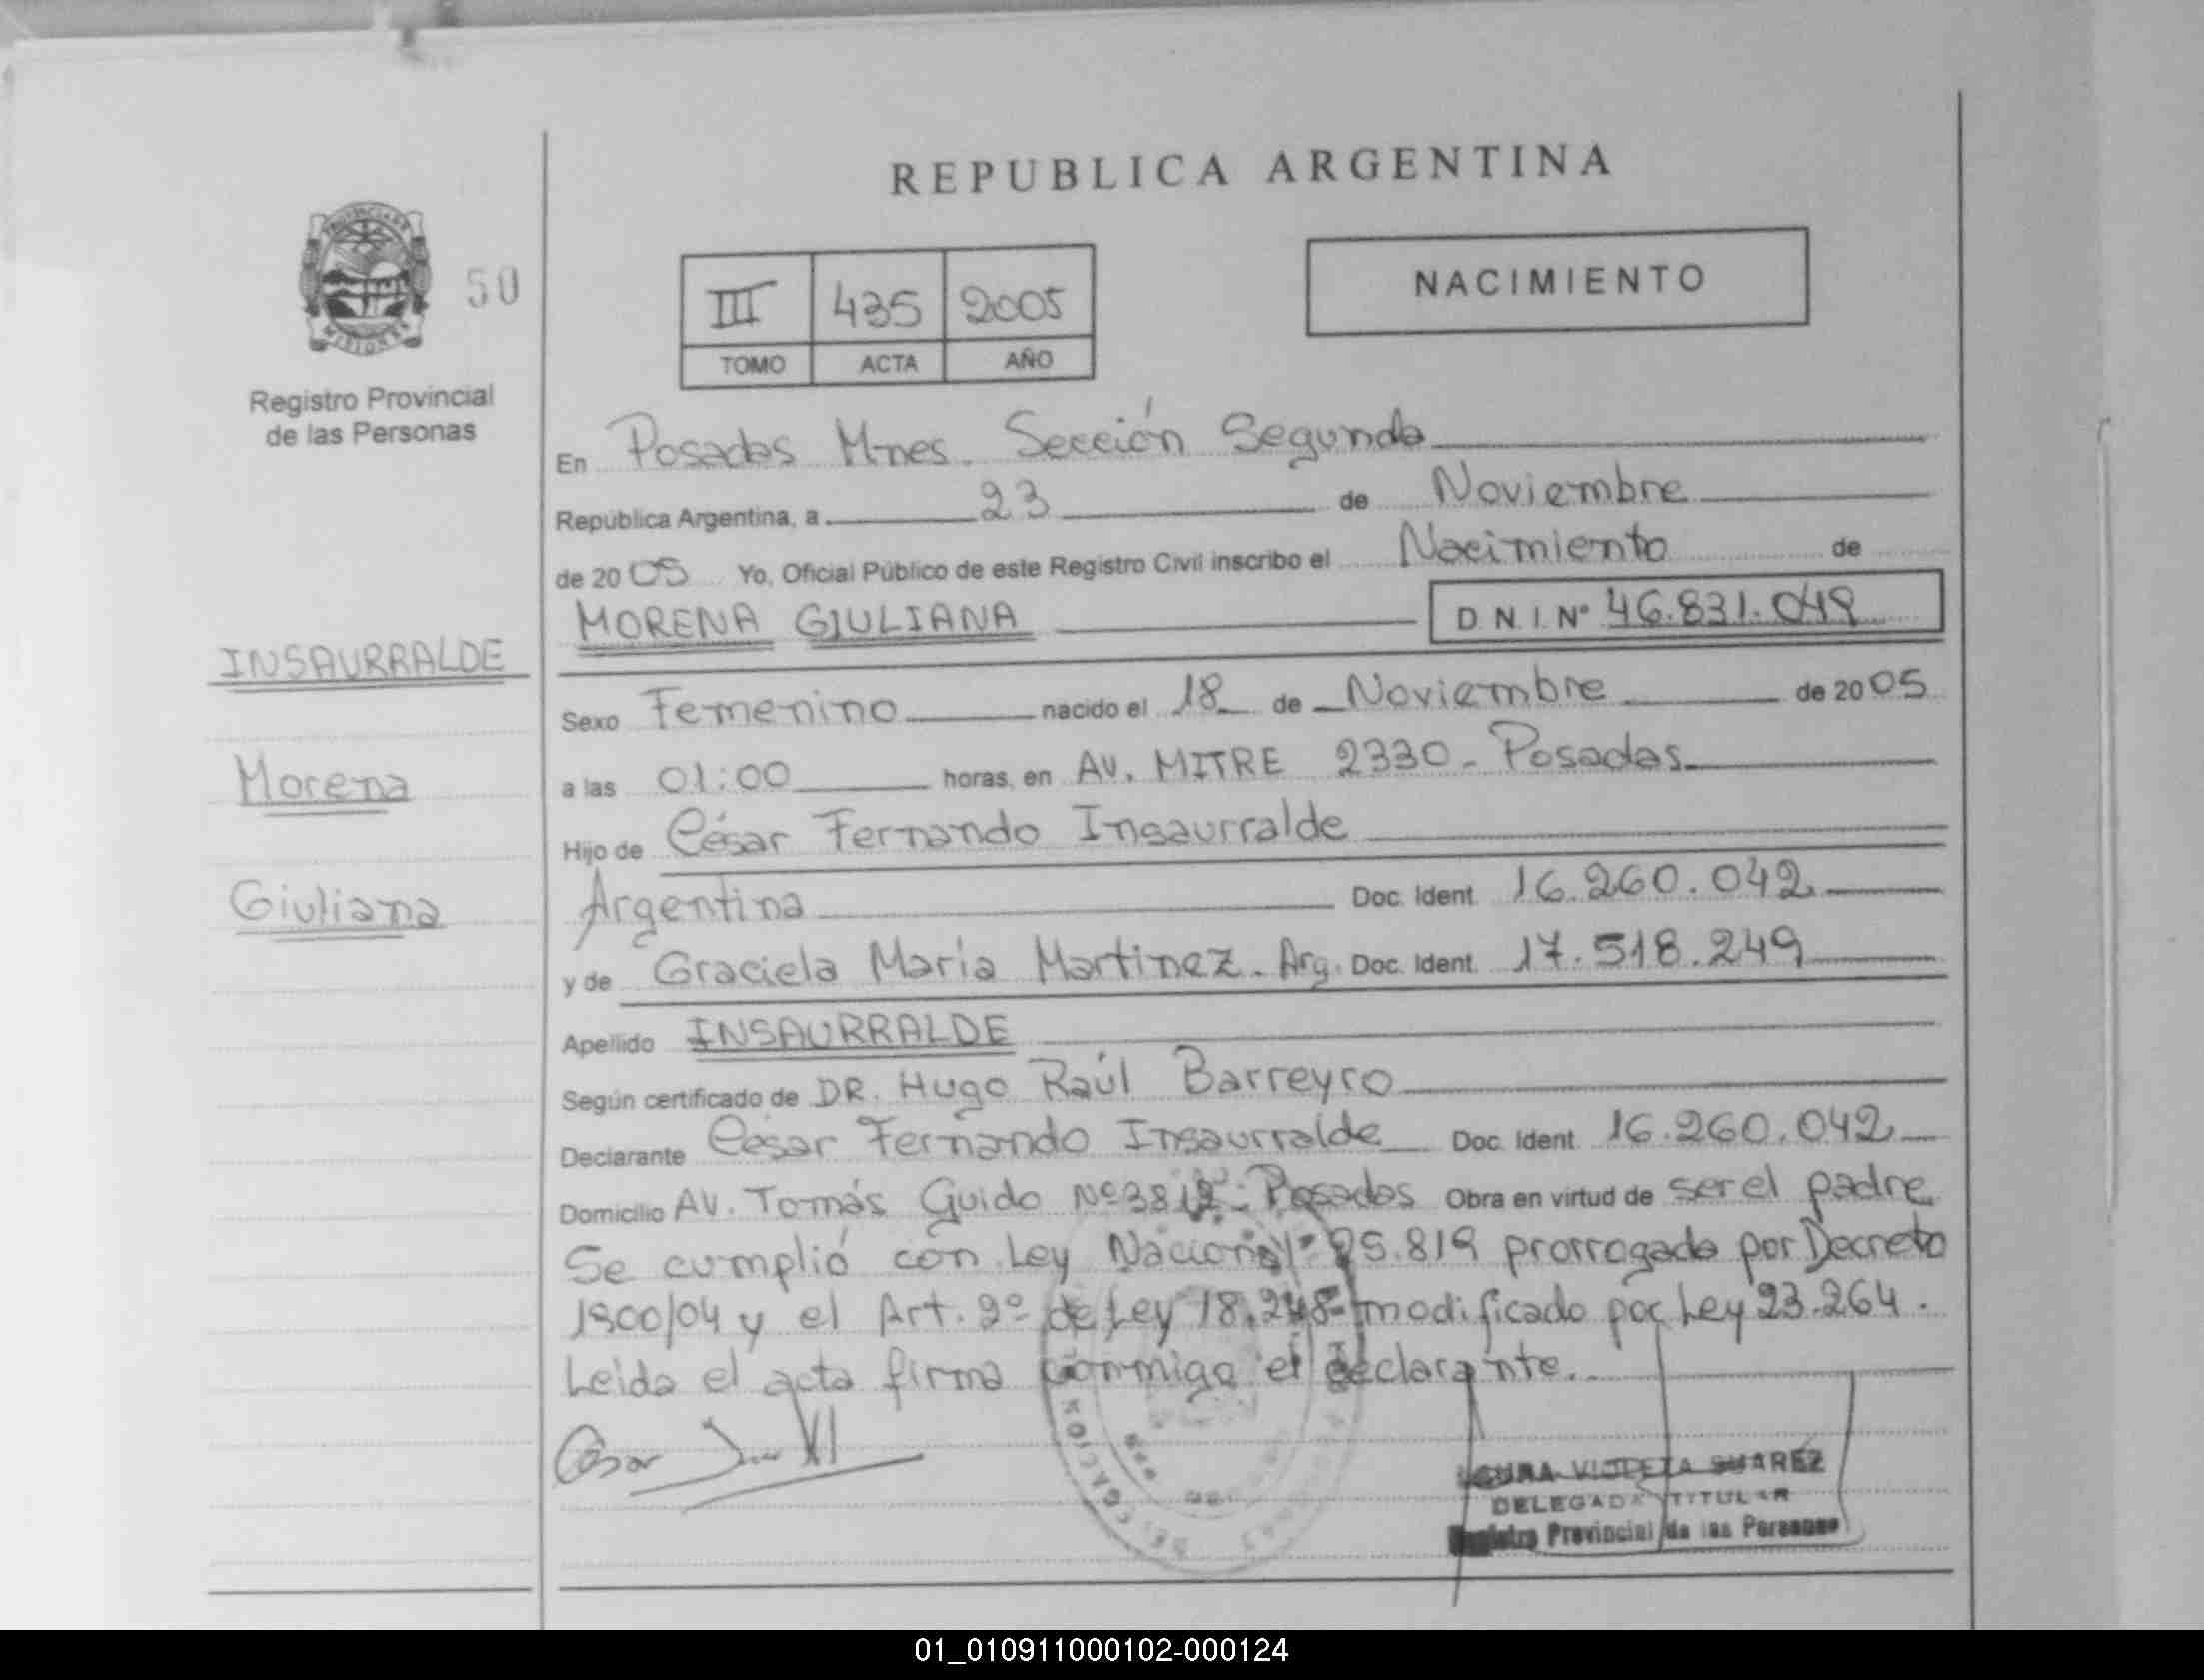 REPUBLICA ARGENTINA
50
NACIMIENTO
III 435 2005
TOMO ACTA AÑO
Registro Provincial
de las Personas
En Posadas Mnes. Sección Segunda
República Argentina, a 23 de Noviembre
de 2005 Yo, Oficial Público de este Registro Civil inscribo el Nacimiento de
MORENA GIULIANA D.N.I. Nº 46.831.049
INSAURRALDE
Morena
Giuliana
Sexo Femenino nacido el 18 de Noviembre de 2005
a las 01:00 horas, en AV. MITRE 2330 - Posadas
Hijo de César Fernando Insaurralde
Argentina Doc. Ident. 16.260.042
y de Graciela María Martinez. Arg. Doc. Ident. 17.518.249
Apellido INSAURRALDE
Según certificado de DR. Hugo Raúl Barreyro
Declarante César Fernando Insaurralde Doc. Ident. 16.260.042
Domicilio AV. Tomás Guido Posadas Obra en virtud de ser el padre
Se cumplió con Ley Nacional 25.819 prorrogada por Decreto
1900/04 y el Art. 2º de Ley 18.248 modificado por Ley 23.264.
Leída el acta firma conmigo el declarante.
Cesar
LAURA VIOLETA SUAREZ
DELEGADA TITULAR
Registro Provincial de las Personas
DELEGACION
01_010911000102-000124